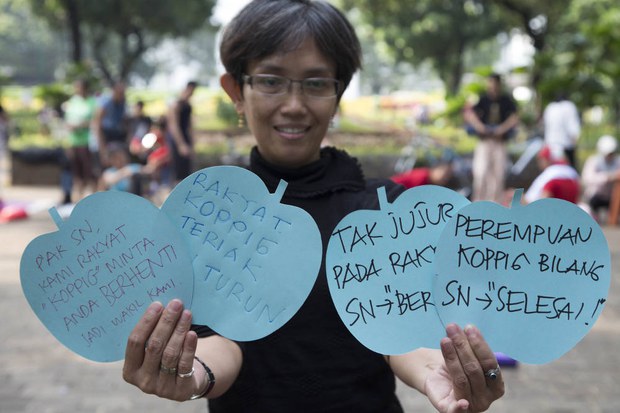 PAK SN,
KAMI RAKYAT
"KOPPIG" MINTA
ANDA BERHENTI
JADI WAKIL KAMI
RAKYAT
KOPPIG
TERIAK
"TURUN"
TAK JUJUR
PADA
SN→"BER
PEREMPUAN
KOPPIG BILANG
SN→"SELESAI.!"